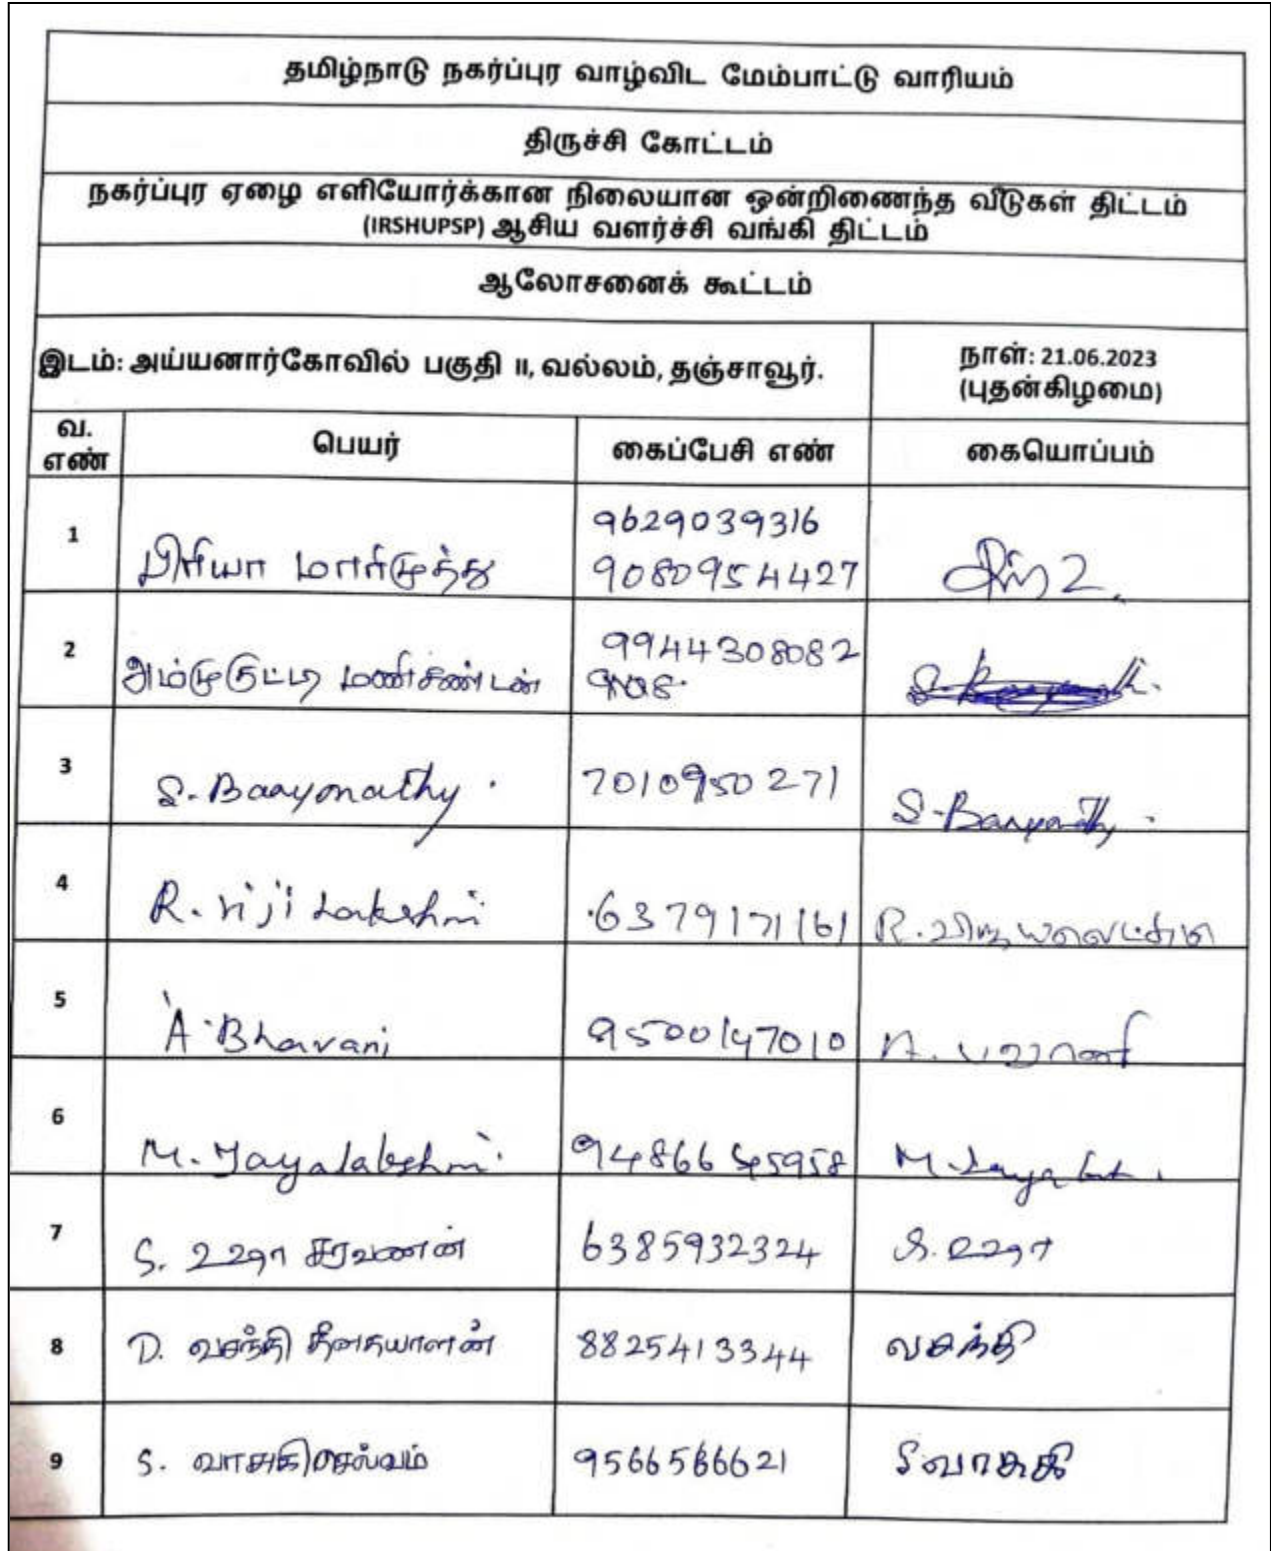 தமிழ்நாடு நகர்ப்புர வாழ்விட மேம்பாட்டு வாரியம்
திருச்சி கோட்டம்
நகர்ப்புர ஏழை எளியோர்க்கான நிலையான ஒன்றிணைந்த வீடுகள் திட்டம்
(IRSHUPSP) ஆசிய வளர்ச்சி வங்கி திட்டம்
ஆலோசனைக் கூட்டம்
இடம்: அய்யனார்கோவில் பகுதி II, வல்லம், தஞ்சாவூர்.
நாள்: 21.06.2023
(புதன்கிழமை)
வ.
எண்
பெயர்
கைப்பேசி எண்
கையொப்பம்
1
பிரியா மாரிமுத்து
9629039316
9080954427
2
அம்முகுட்டி மணிகண்டன்
9944308082
3
S. Baaymathy.
7010950271
4
R. viji Lakshmi
6379171161
5
A. Bhavani
9500147010
A. பவானி
6
M. Jayalakshmi
9486645958
7
S. உஷா சரவணன்
6385932324
S. உஷா
8
D. வசந்தி தீனதயாளன்
8825413344
வசந்தி
9
S. வாசுகி செல்வம்
9566566621
S வாசுகி